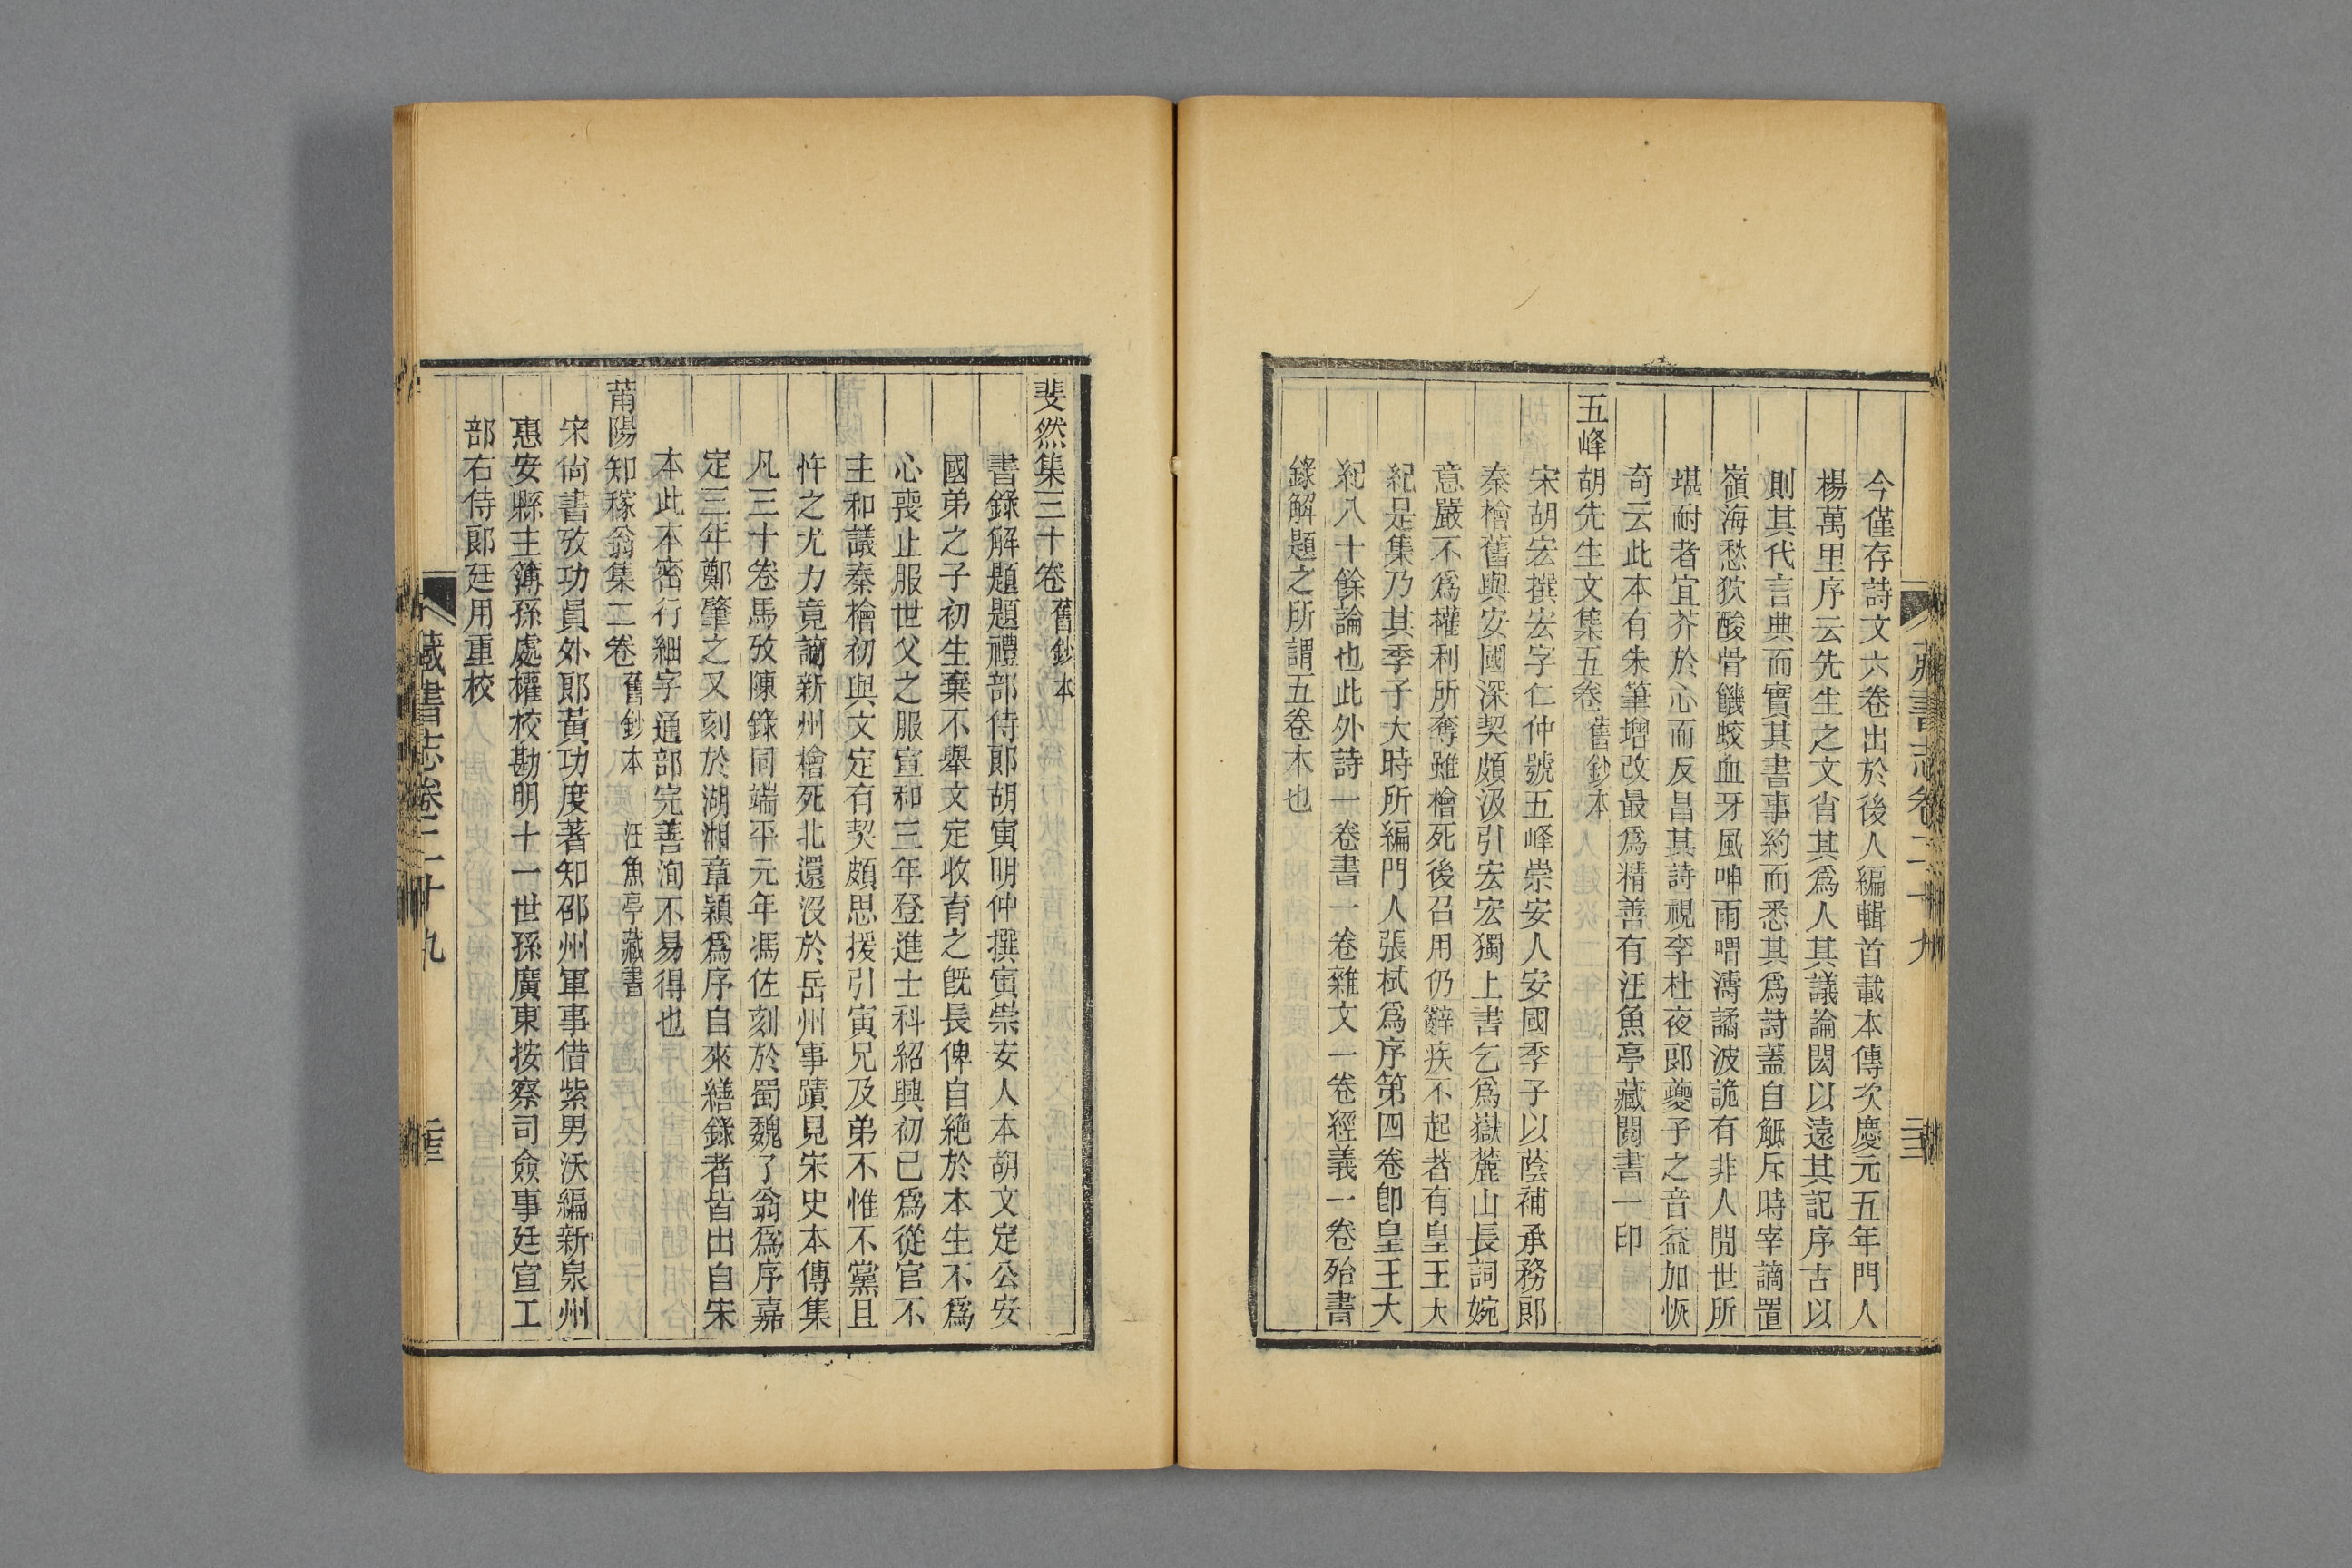 今僅存詩文六卷出於後人編輯首載本傳次慶元五年門人
楊萬里序云先生之文肖其爲人其議論閎以遠其記序古以
則其代言典而實其書事約而悉其爲詩蓋自觝斥時宰謫置
嶺海愁狖酸骨饑蛟血牙風呻雨喟濤譎波詭有非人間世所
堪耐者宜芥於心而反昌其詩視李杜夜郎夔子之音益加恢
奇云此本有朱筆增改最爲精善有汪魚亭藏閱書一印
五峰胡先生文集五卷 舊鈔本
宋胡宏撰宏字仁仲號五峰崇安人安國季子以蔭補承務郎
秦檜舊與安國深契頗汲引宏宏獨上書乞爲嶽麓山長詞婉
意嚴不爲權利所奪雖檜死後召用仍辭疾不起著有皇王大
紀是集乃其季子大時所編門人張栻爲序第四卷卽皇王大
紀八十餘論也此外詩一卷書一卷雜文一卷經義一卷殆書
錄解題之所謂五卷本也
藏書志卷二十九 三
斐然集三十卷 舊鈔本
書錄解題題禮部侍郎胡寅明仲撰寅崇安人本胡文定公安
國弟之子初生棄不舉文定收育之旣長俾自絕於本生不爲
心喪止服世父之服宣和三年登進士科紹興初已爲從官不
主和議秦檜初與文定有契頗思援引寅兄及弟不惟不黨且
忤之尤力竟謫新州檜死北還沒於岳州事蹟見宋史本傳集
凡三十卷馬攷陳錄同端平元年馮佐刻於蜀魏了翁爲序嘉
定三年鄭肇之又刻於湖湘章穎爲序自來繕錄者皆出自宋
本此本密行細字通部完善洵不易得也
莆陽知稼翁集二卷 舊鈔本 汪魚亭藏書
宋尙書攷功員外郎黃功度著知邵州軍事借紫男沃編新泉州
惠安縣主簿孫處權校勘明十一世孫廣東按察司僉事廷宣工
部右侍郎廷用重校
藏書志卷二十九 三